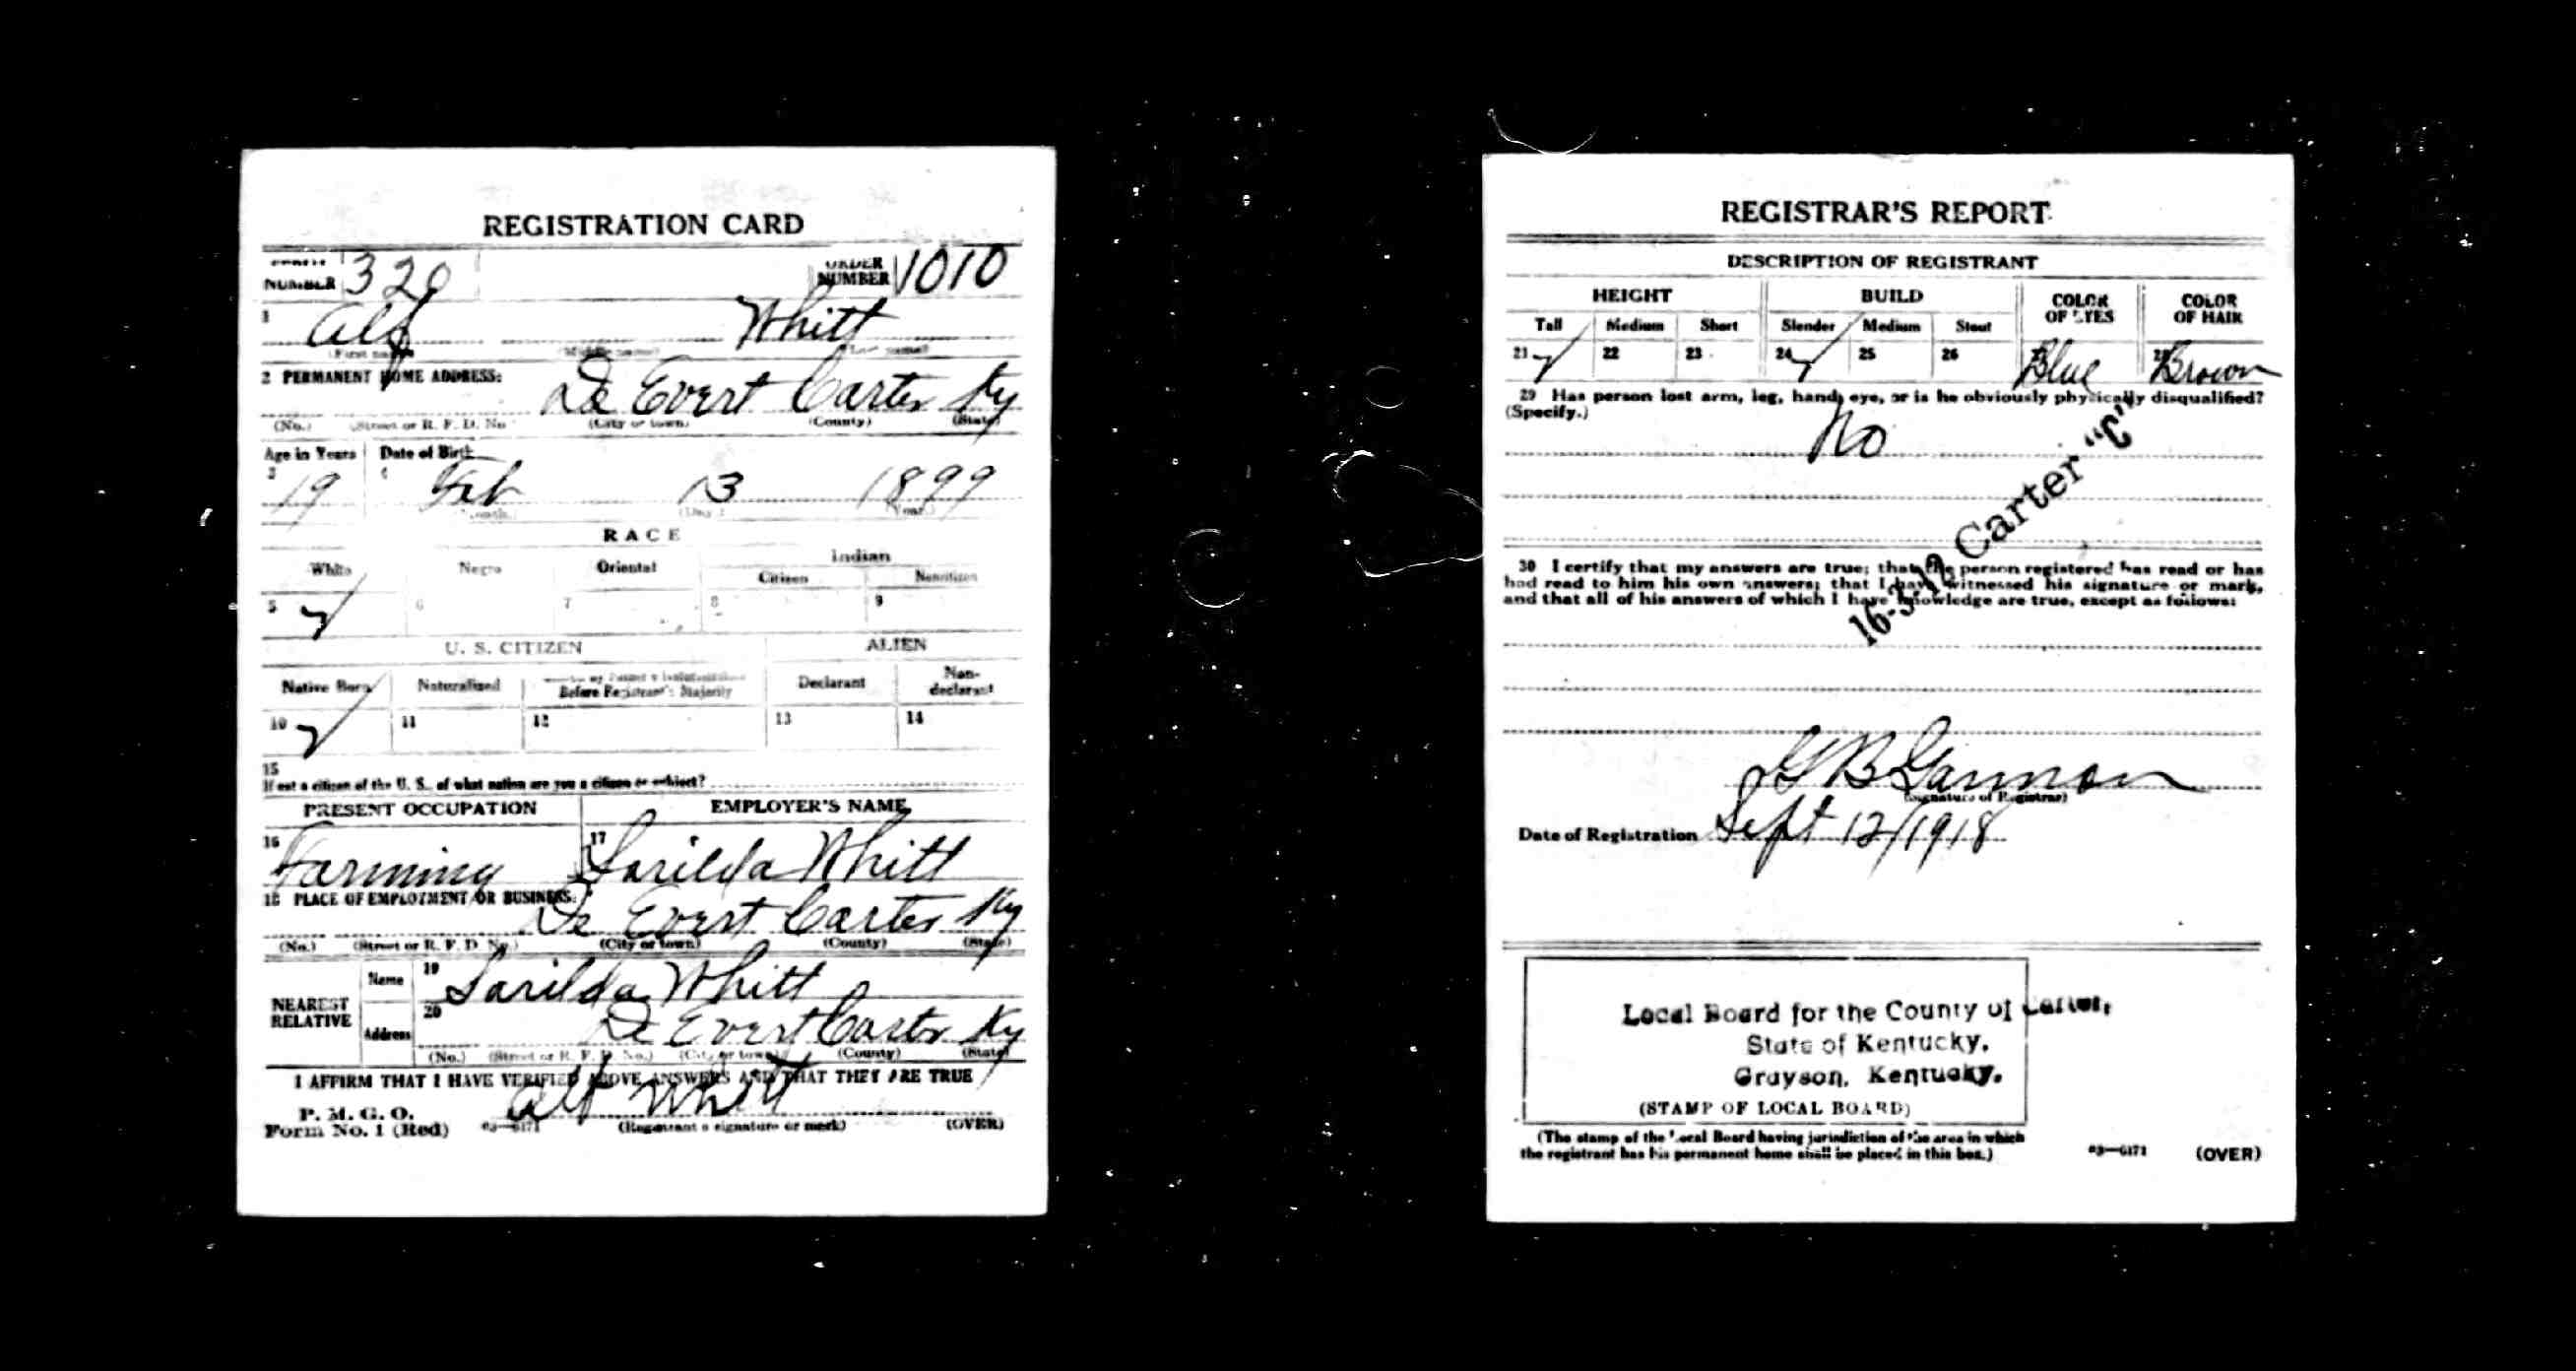 REGISTRATION CARD
SERIAL NUMBER 320 ORDER NUMBER 1010
1 Alf Whitt
(First name) (Middle name) (Last name)
2 PERMANENT HOME ADDRESS:
De Evert Carter Ky
(No.) (Street or R. F. D. No.) (City or town) (County) (State)
Age in Years Date of Birth
3 19 4 Feb 13 1899
(Month.) (Day.) (Year.)
RACE
White Negro Oriental Indian
Citizen Noncitizen
5 ✓ 6 7 8 9
U. S. CITIZEN ALIEN
Native Born Naturalized Before Registrant's Majority Declarant Non-declarant
10 ✓ 11 12 13 14
15
If not a citizen of the U. S., of what nation are you a citizen or subject?
PRESENT OCCUPATION EMPLOYER'S NAME
16 Farming 17 Sarilda Whitt
18 PLACE OF EMPLOYMENT OR BUSINESS:
De Evert Carter Ky
(No.) (Street or R. F. D. No.) (City or town) (County) (State)
NEAREST RELATIVE Name 19 Sarilda Whitt
Address 20 De Evert Carter Ky
(No.) (Street or R. F. D. No.) (City or town) (County) (State)
I AFFIRM THAT I HAVE VERIFIED ABOVE ANSWERS AND THAT THEY ARE TRUE
P. M. G. O.
Form No. 1 (Red) 03—6171 Alf Whitt (Registrant's signature or mark) (OVER)
REGISTRAR'S REPORT
DESCRIPTION OF REGISTRANT
HEIGHT BUILD COLOR OF EYES COLOR OF HAIR
Tall Medium Short Slender Medium Stout
21 ✓ 22 23 24 ✓ 25 26 Blue Brown
29 Has person lost arm, leg, hand, eye, or is he obviously physically disqualified?
(Specify.)
No
16-3-12 Carter "C"
30 I certify that my answers are true; that the person registered has read or has
had read to him his own answers; that I have witnessed his signature or mark,
and that all of his answers of which I have knowledge are true, except as follows:
G B Gannon
(Signature of Registrar)
Date of Registration Sept 12/1918
Local Board for the County of Carter,
State of Kentucky,
Grayson, Kentucky.
(STAMP OF LOCAL BOARD)
(The stamp of the Local Board having jurisdiction of the area in which
the registrant has his permanent home shall be placed in this box.)
03—6171 (OVER)